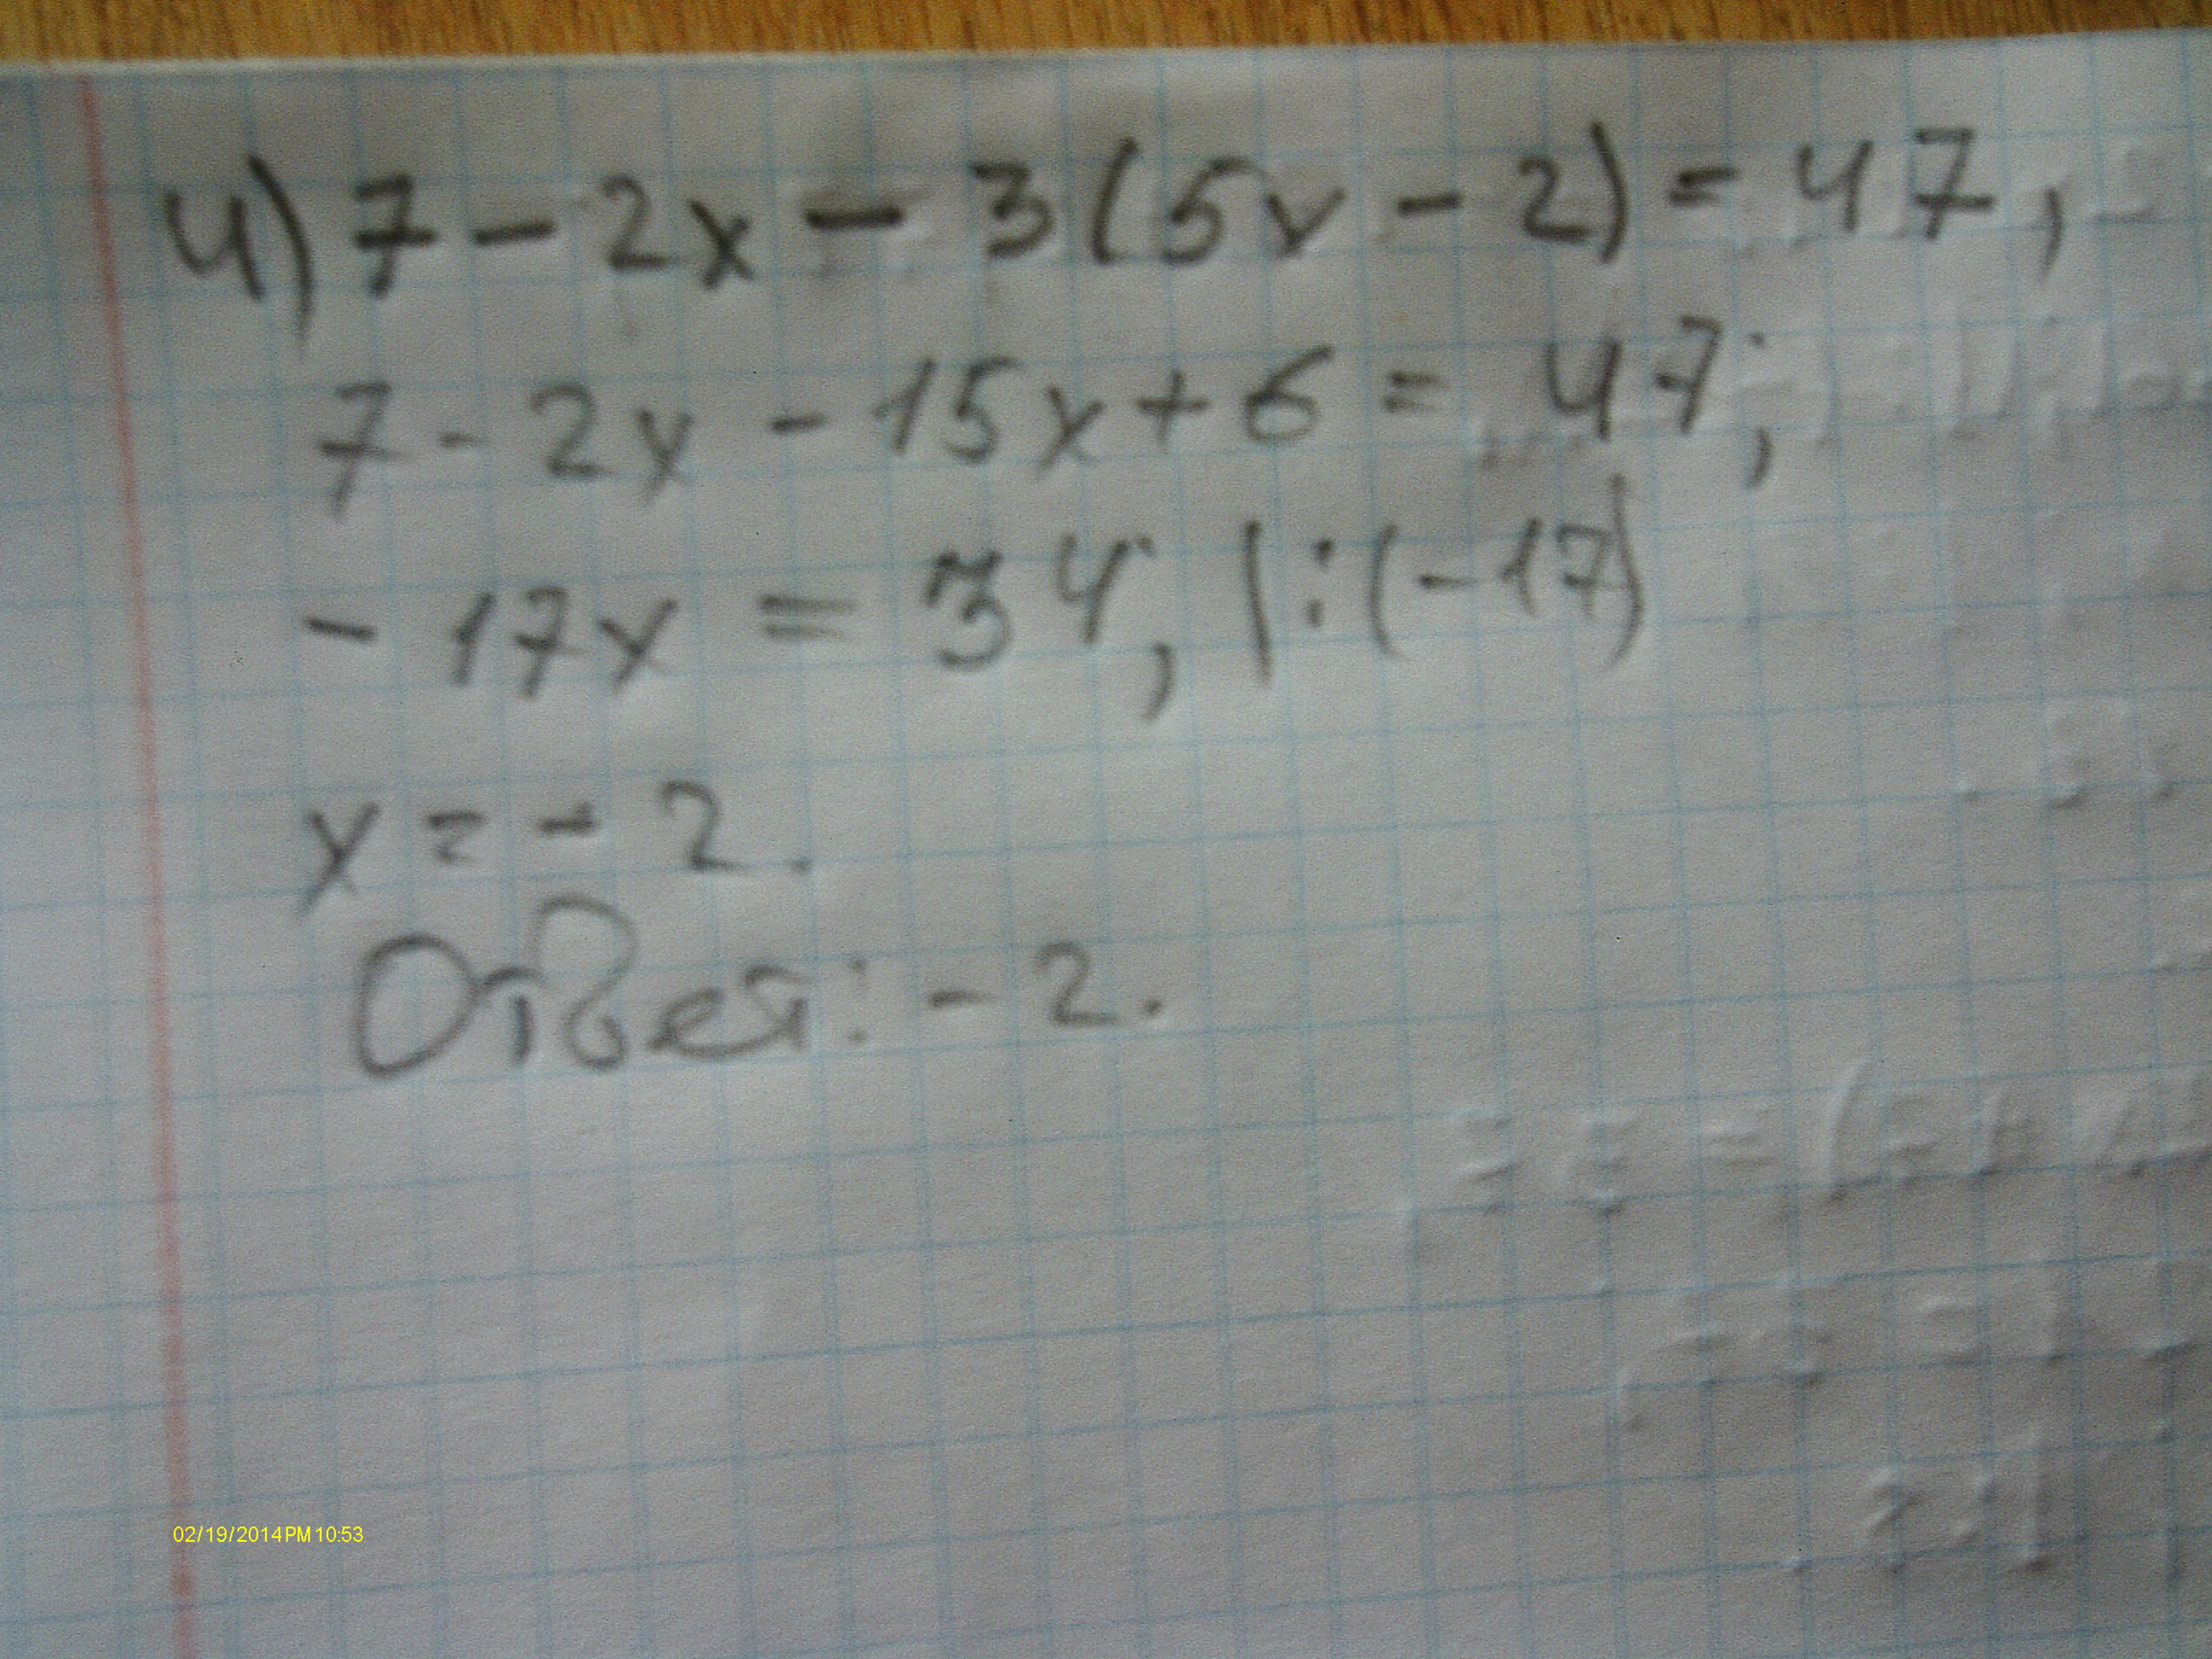 4) 7 - 2x - 3(5x - 2) = 47,
7 - 2x - 15x + 6 = 47;
- 17x = 34, |:(-17)
x = - 2.
Ответ: - 2.
02/19/2014PM10:53